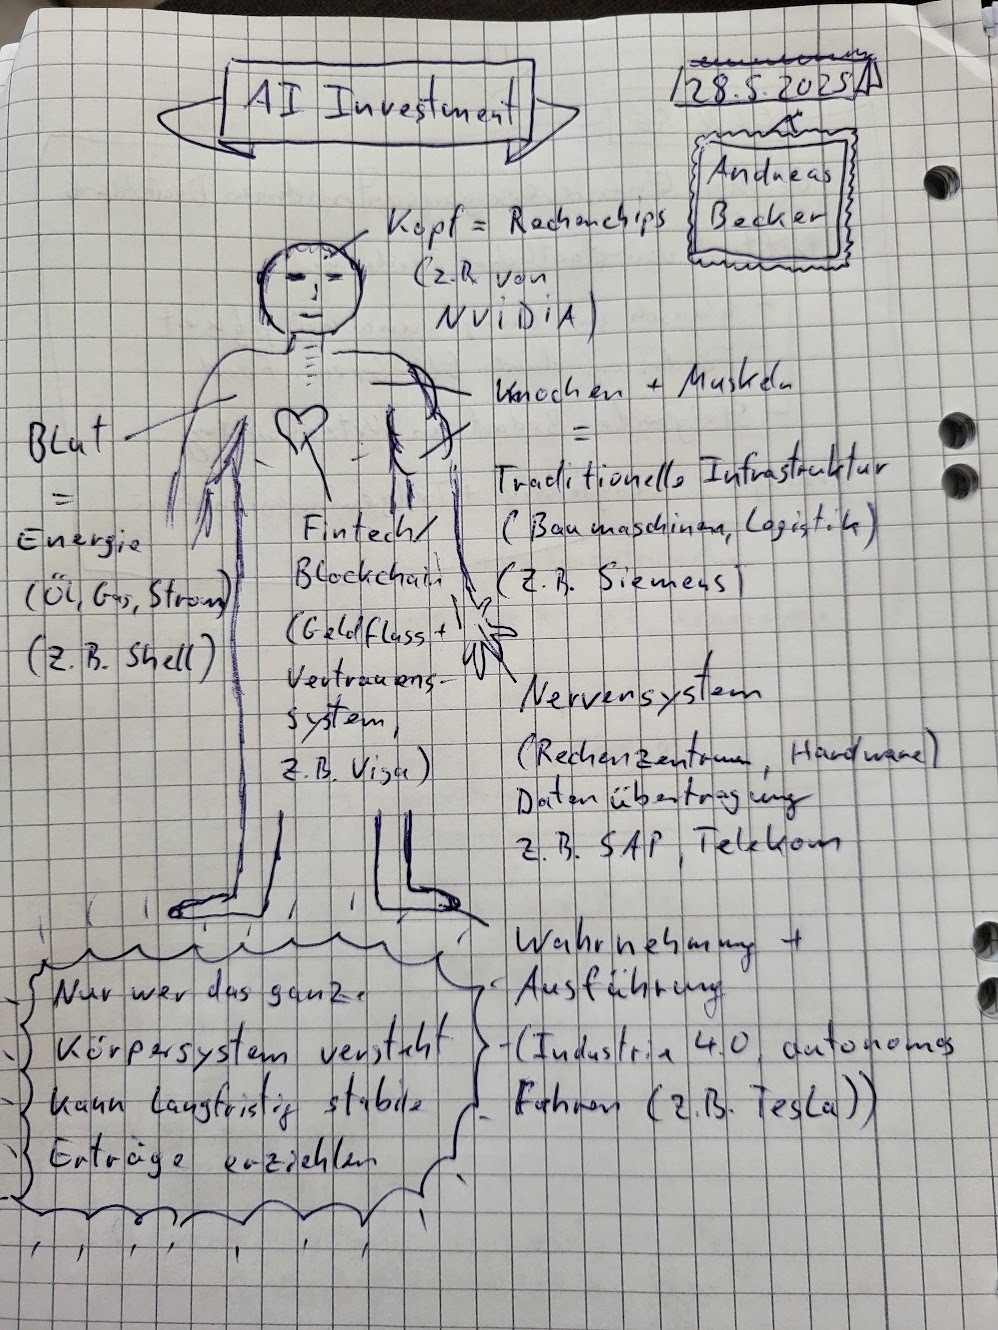 AI Investment
28.5.2025
Andreas
Becker
Kopf = Rechenchips
(z.B. von
NViDiA)
Knochen + Muskeln
=
Traditionelle Infrastruktur
(Baumaschinen, Logistik)
(z.B. Siemens)
Blut
=
Energie
(Öl, Gas, Strom)
(z.B. Shell)
Fintech/
Blockchain
(Geldfluss +
Vertrauens-
system,
z.B. Visa)
Nervensystem
(Rechenzentrum, Hardware)
Datenübertragung
z.B. SAP, Telekom
Wahrnehmung +
Ausführung
(Industrie 4.0, autonomes
Fahren (z.B. Tesla))
Nur wer das ganze
Körpersystem versteht
kann langfristig stabile
Erträge erziehlen